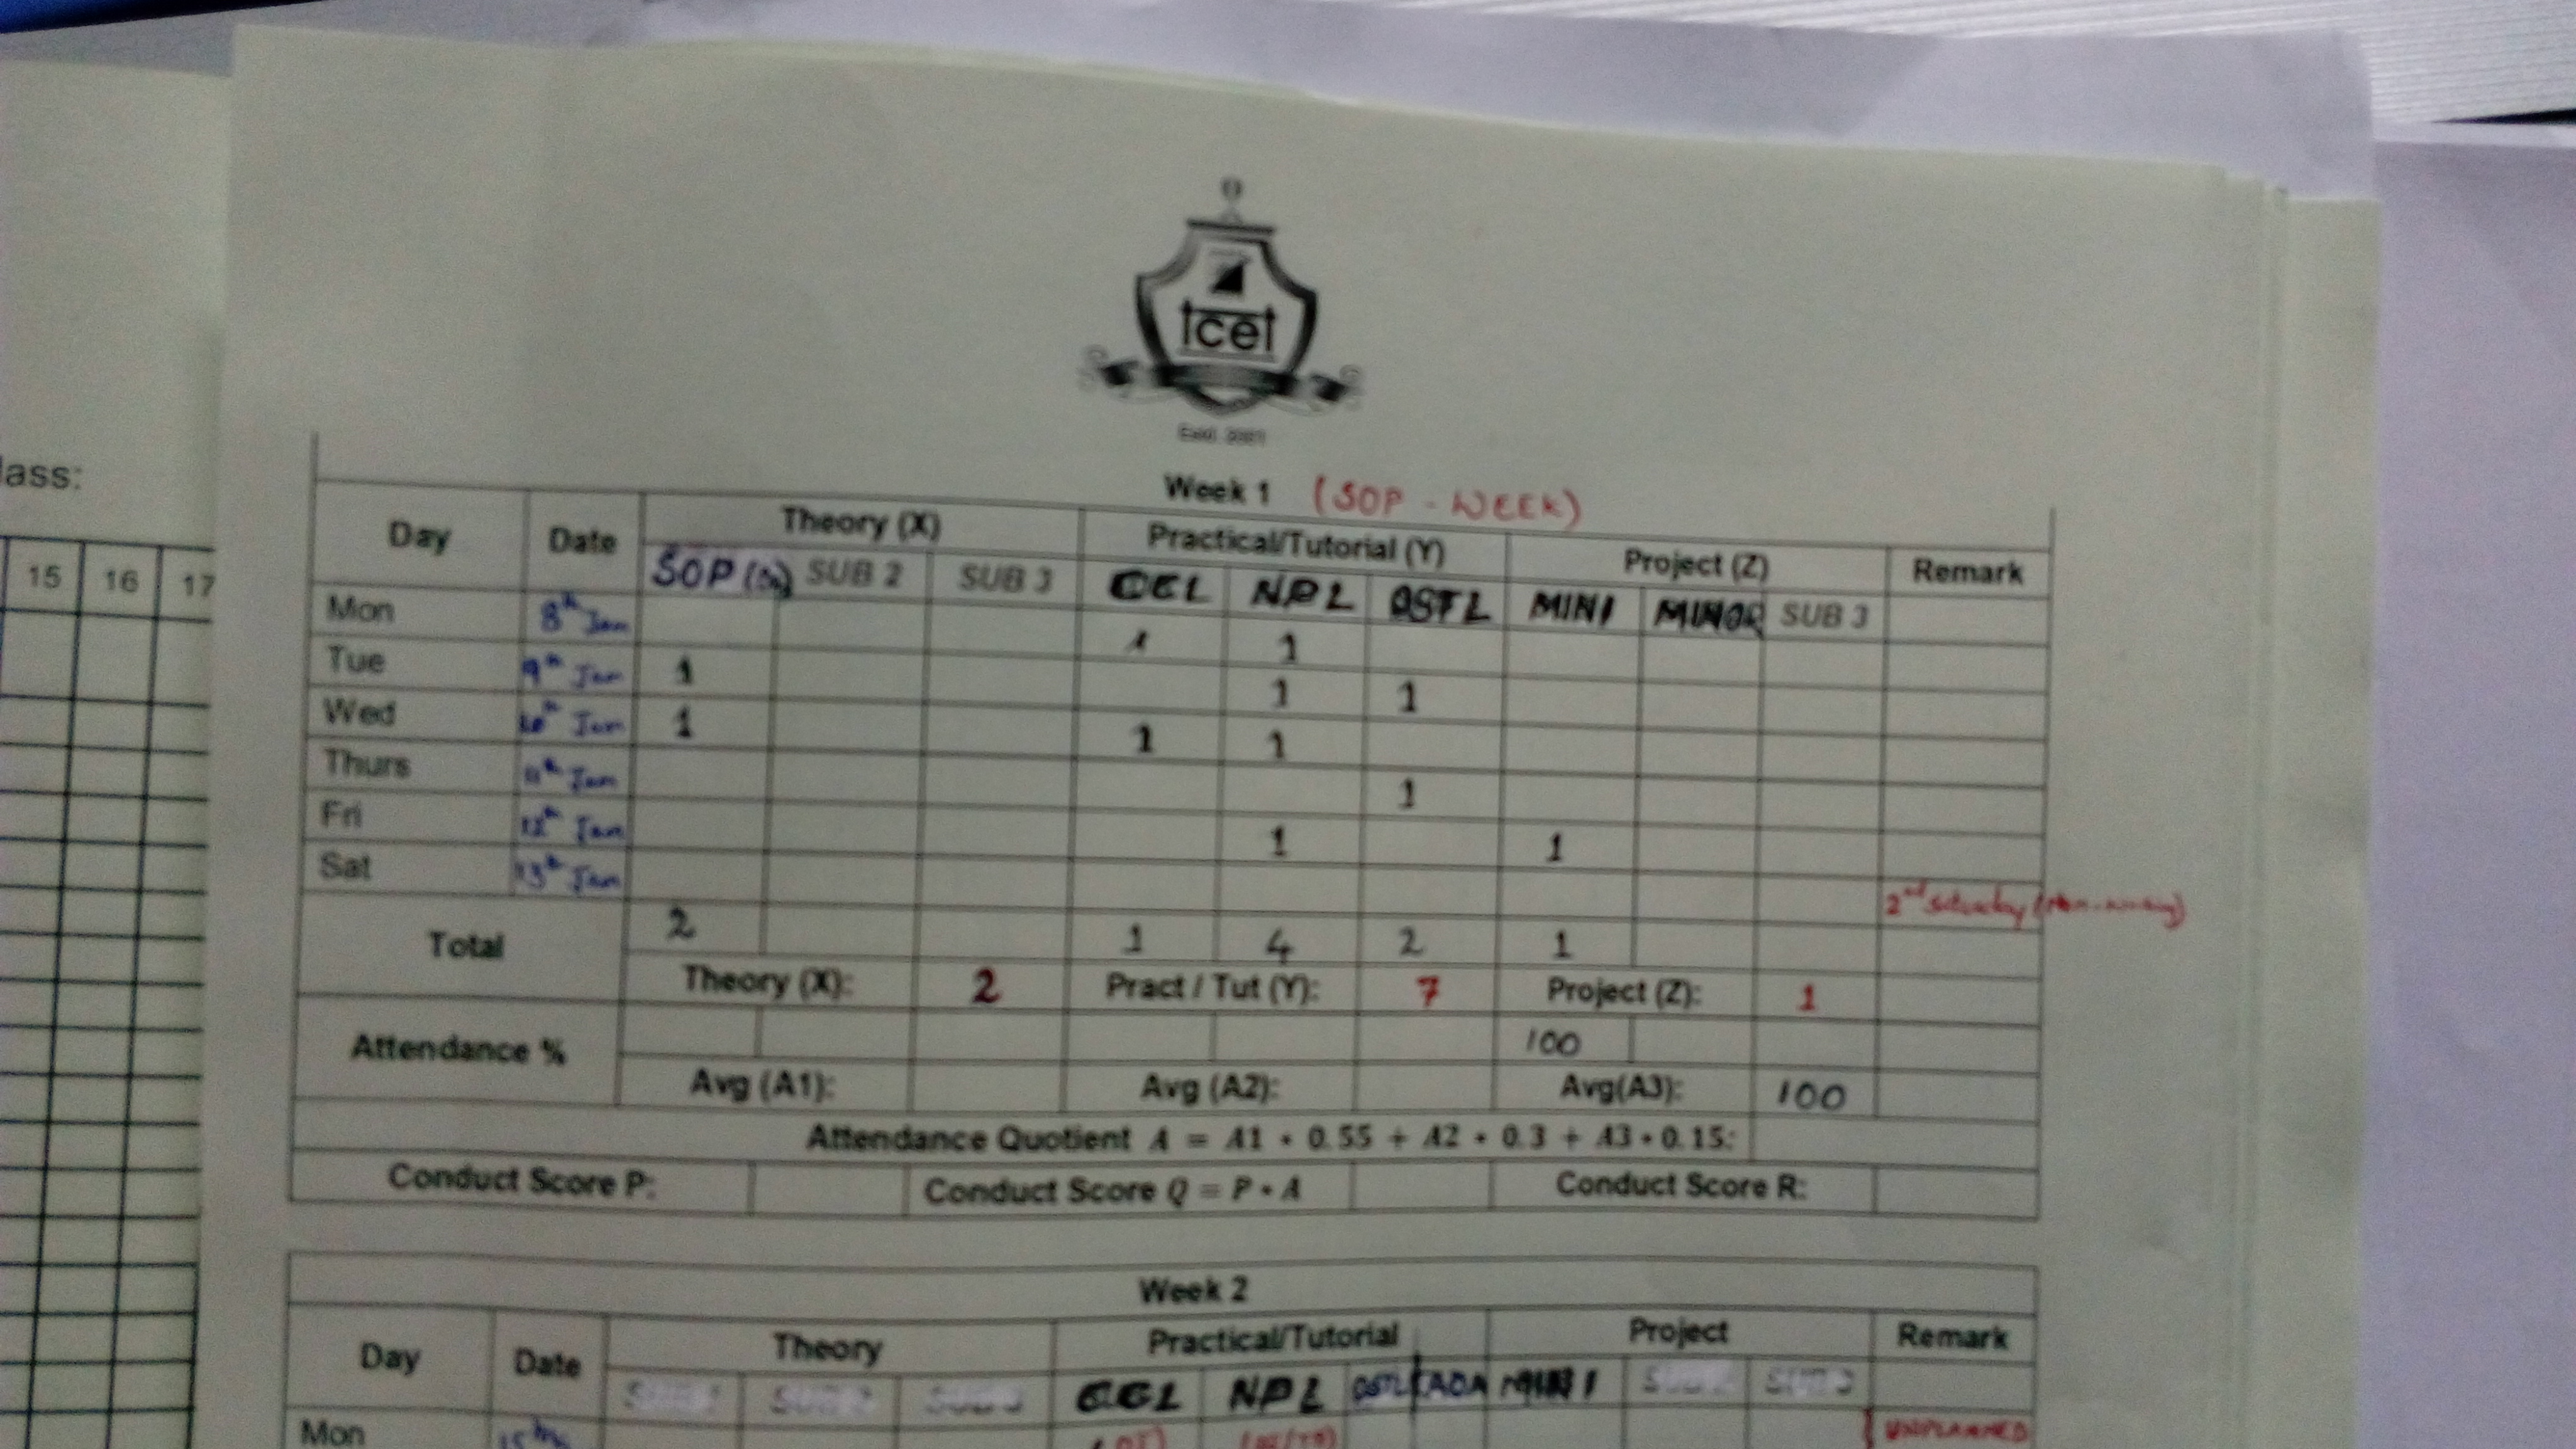 tcet
Estd. 2001
lass:
15 16 17
Week 1 (SOP - WEEK)
Day Date Theory (X) Practical/Tutorial (Y) Project (Z) Remark
SOP SUB 2 SUB 3 NPL OSTL MINI MINOR SUB 3
Mon 8th Jan 1 1
Tue 9th Jan 1 1 1
Wed 10th Jan 1 1 1
Thurs 11th Jan 1
Fri 12th Jan 1 1
Sat 13th Jan 2nd Saturday
Total 2 1 4 2 1
Theory (X): 2 Pract / Tut (Y): 7 Project (Z): 1
Attendance % 100
Avg (A1): Avg (A2): Avg(A3): 100
Attendance Quotient A = A1 * 0.55 + A2 * 0.3 + A3 * 0.15:
Conduct Score P: Conduct Score Q = P * A Conduct Score R:
Week 2
Day Date Theory Practical/Tutorial Project Remark
NPL OSTL AOA
Mon 15th UNPLANNED